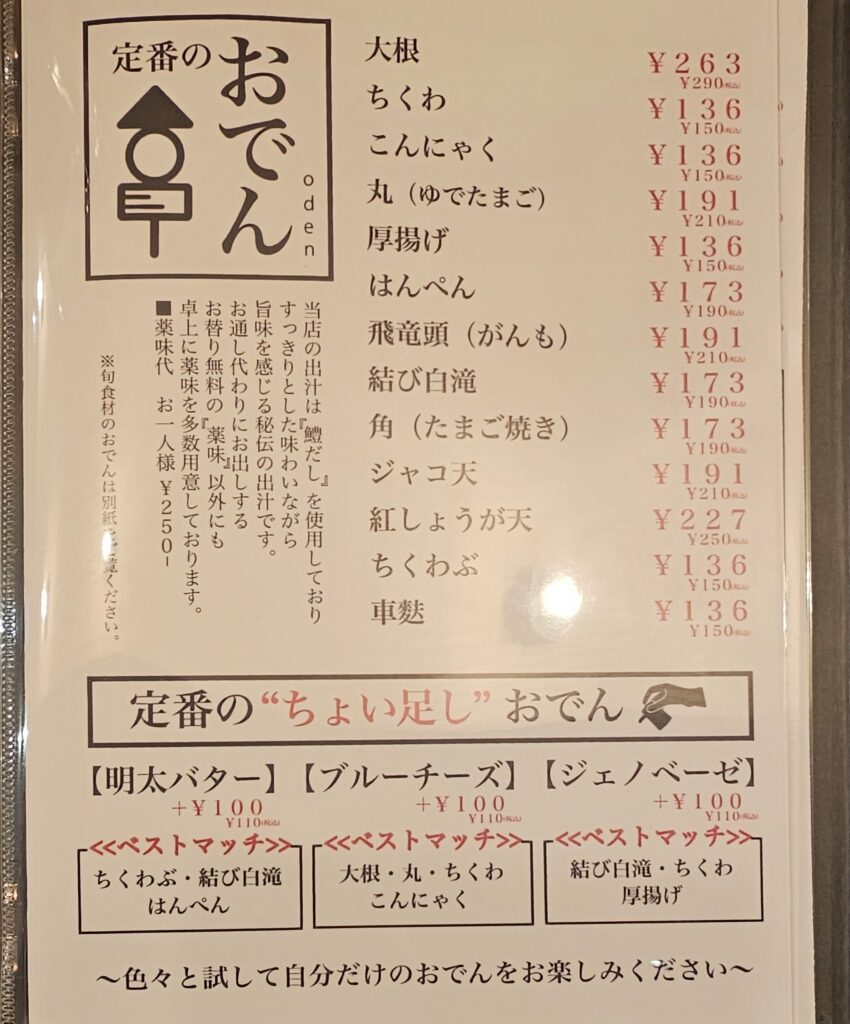 定番の
おでん
oden
大根 ￥263
￥290(税込)
ちくわ ￥136
￥150(税込)
こんにゃく ￥136
￥150(税込)
丸（ゆでたまご） ￥191
￥210(税込)
厚揚げ ￥136
￥150(税込)
はんぺん ￥173
￥190(税込)
飛竜頭（がんも） ￥191
￥210(税込)
結び白滝 ￥173
￥190(税込)
角（たまご焼き） ￥173
￥190(税込)
ジャコ天 ￥191
￥210(税込)
紅しょうが天 ￥227
￥250(税込)
ちくわぶ ￥136
￥150(税込)
車麩 ￥136
￥150(税込)
当店の出汁は『鱧だし』を使用しており
すっきりとした味わいながら
旨味を感じる秘伝の出汁です。
お通し代わりにお出しする
お替り無料の『薬味』以外にも
卓上に薬味を多数用意しております。
■薬味代 お一人様￥250-
※旬食材のおでんは別紙をご覧ください。
定番の“ちょい足し”おでん
【明太バター】
+￥100
￥110(税込)
<<ベストマッチ>>
ちくわぶ・結び白滝
はんぺん
【ブルーチーズ】
+￥100
￥110(税込)
<<ベストマッチ>>
大根・丸・ちくわ
こんにゃく
【ジェノベーゼ】
+￥100
￥110(税込)
<<ベストマッチ>>
結び白滝・ちくわ
厚揚げ
〜色々と試して自分だけのおでんをお楽しみください〜